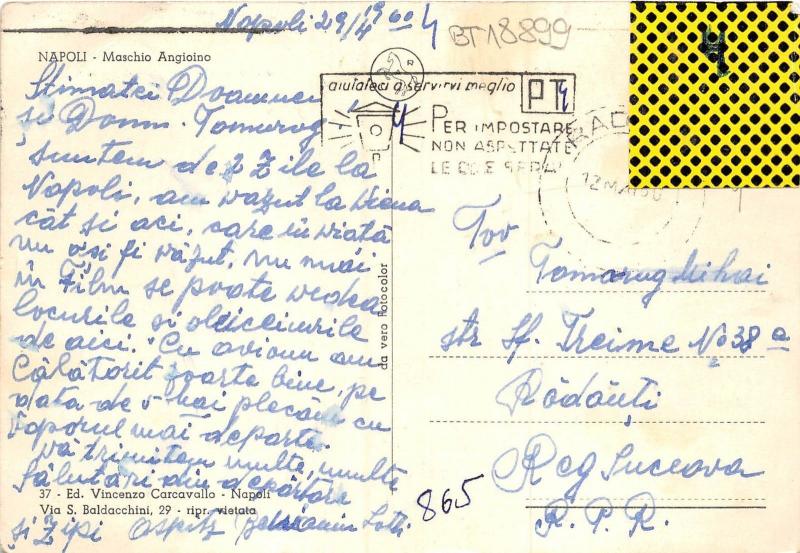 Napoli 29/4 1960
BT18899
NAPOLI - Maschio Angioino
R
aiutateci a servirvi meglio
PT
PER IMPOSTARE
NON ASPETTATE
LE ORE SERALI
RAD
12 MA
Stimatei Doamnei
si Domn. Tomarug
suntem de 2 zile la
Napoli, am văzut la Viena
cât si aci, care în viată
nu asi fi văzut, nu mai
în Film se poate vedea
locurile si obiceiurile
de aici. Cu avionu am
Călătorit foarte bine, pe
data de 5 mai plecăm cu
vaporul mai departe.
Vă trimitem multe, multe
Sălutări din depărtare
și Zipi Ospitz Beniamin Lotti
37 - Ed. Vincenzo Carcavallo - Napoli
Via S. Baldacchini, 29 - ripr. vietata
da vero Fotocolor
Tov
Tomarug Mihai
str Sf. Treime No 38 a
Rădăuți
Reg Suceava
R. P. R.
865